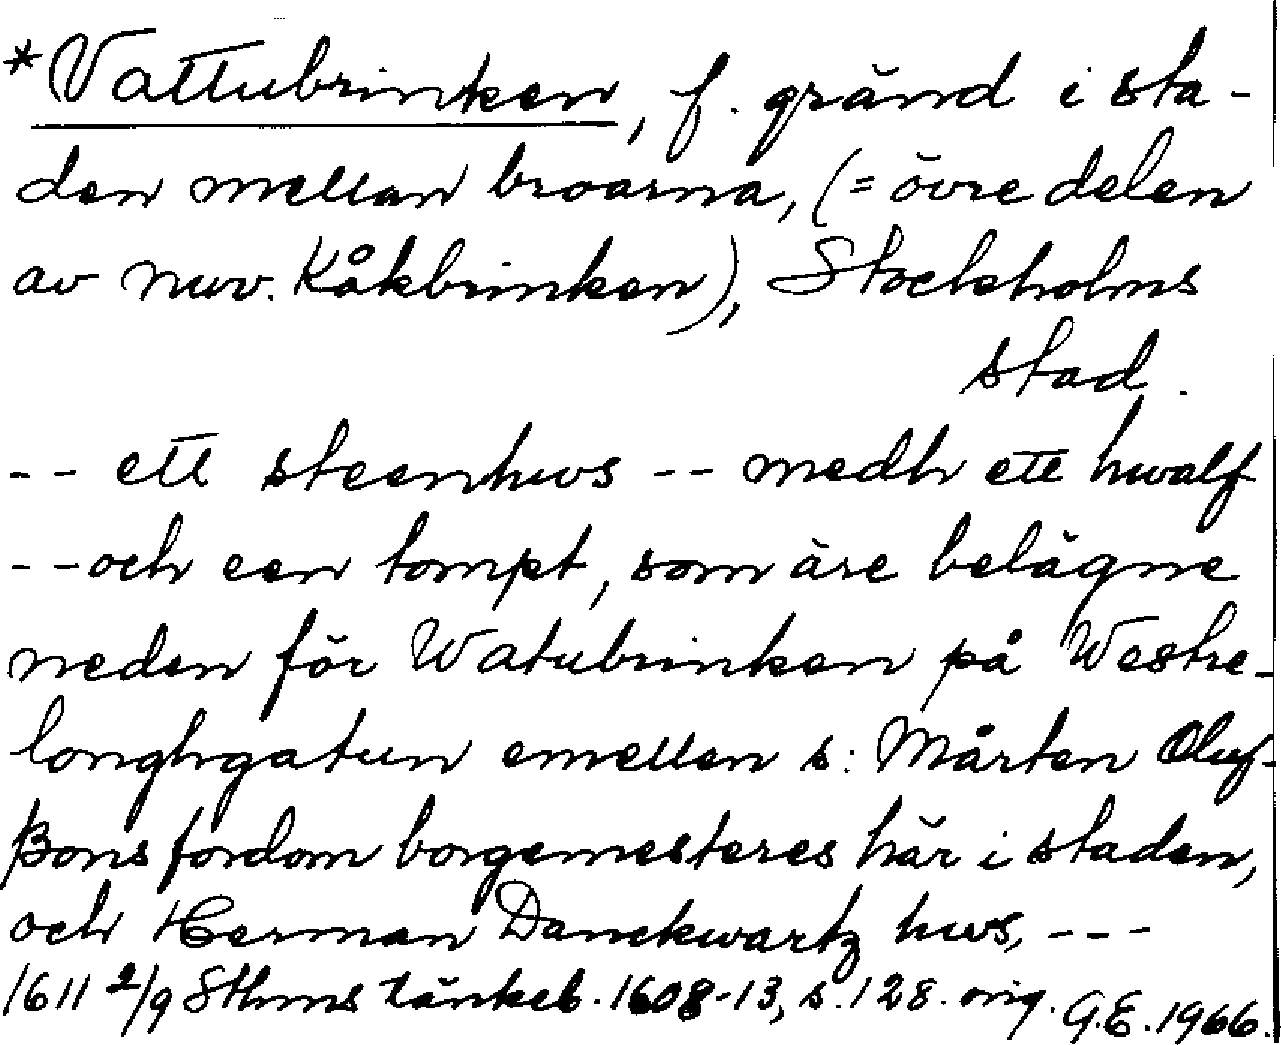 *Vattubrinken, f. gränd i sta-
den mellan broarna, (= övre delen
av nuv. Kåkbrinken), Stockholms
stad.
-- ett steenhws -- medh ett hwalf
-- och een tompt, som äre belägne
neden för Watubrinken på Westre-
longhgatun emellen s: Mårten Oluf-
ßons fordom borgemesteres här i staden,
och Herman Danckwartz hws, ---
1611 2/9 Sthms tänkeb. 1608-13, s. 128. orig. G.E. 1966.